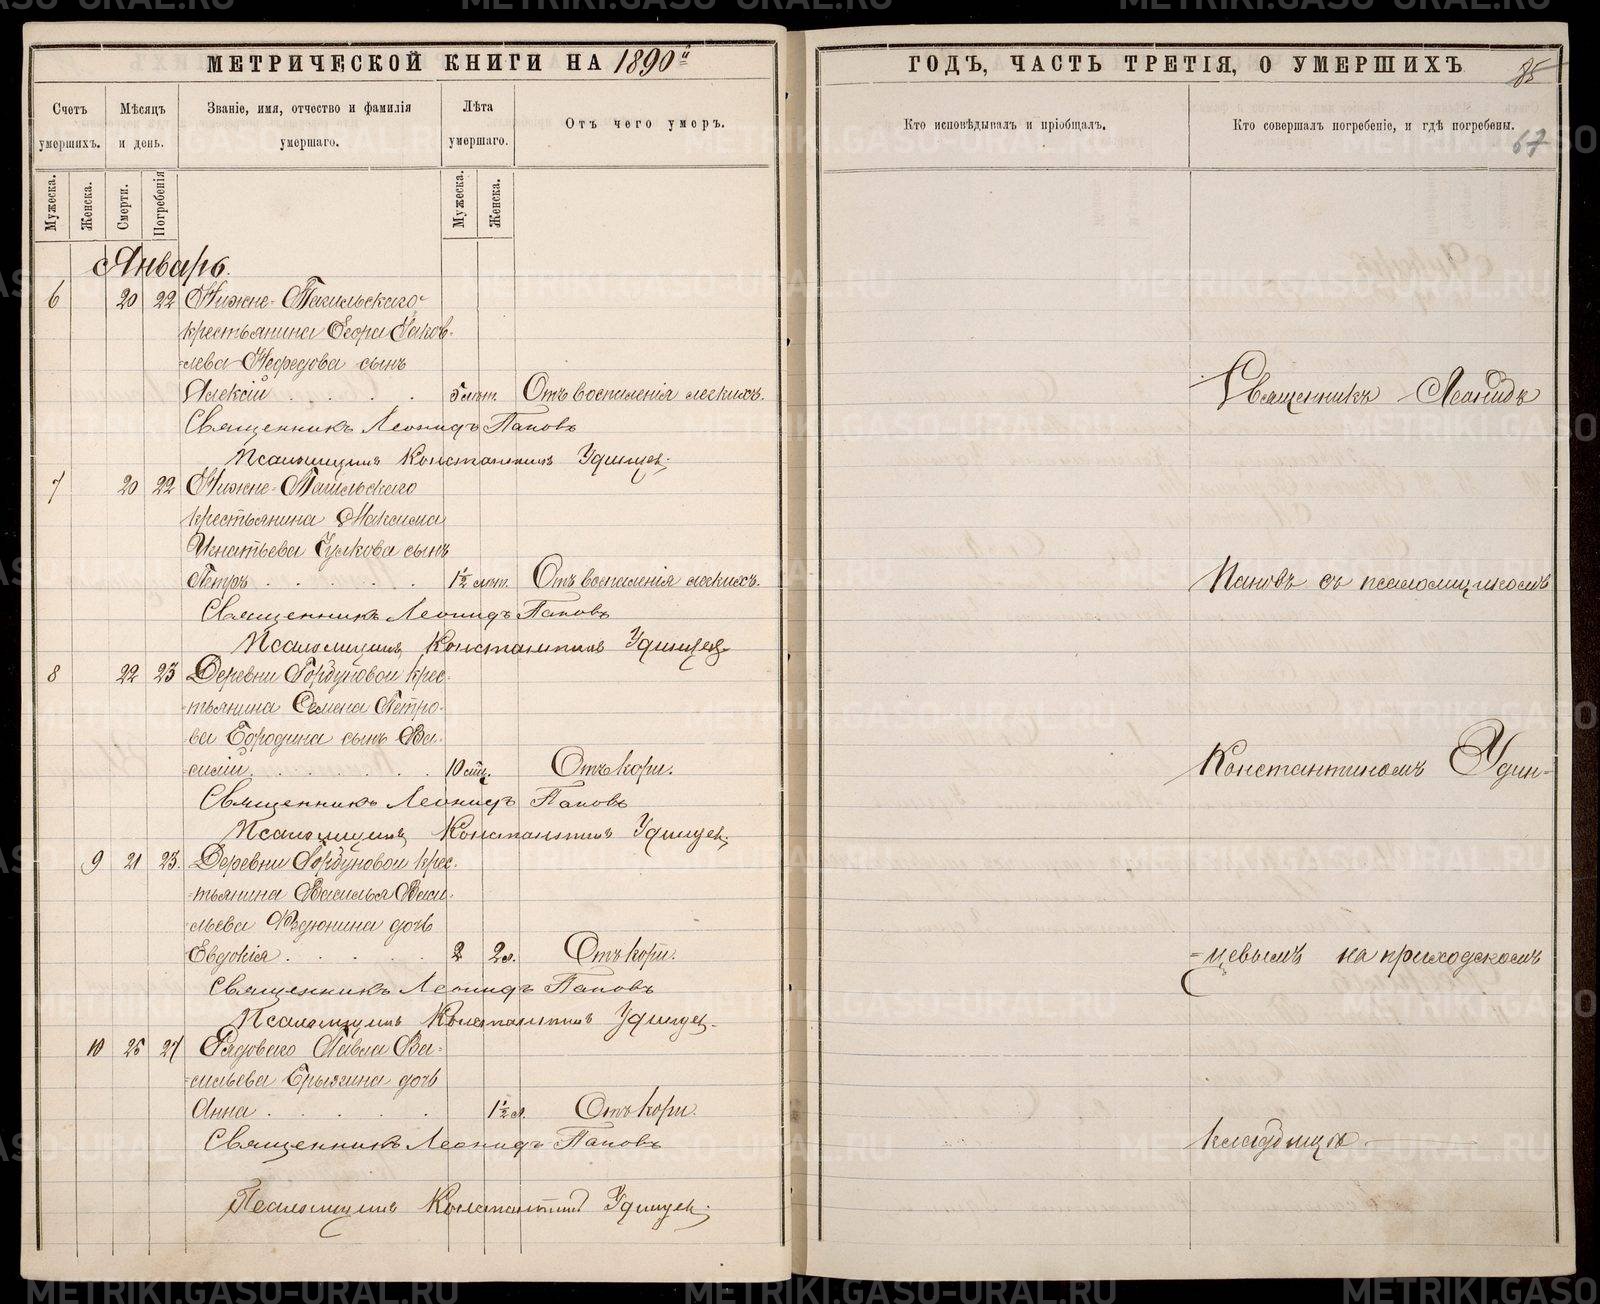 МЕТРИЧЕСКОЙ КНИГИ НА 1890й
Счетъ умершихъ.
Мѣсяцъ и день.
Званіе, имя, отчество и фамилія умершаго.
Лѣта умершаго.
Отъ чего умеръ.
Мужеска.
Женска.
Смерти.
Погребенія
Мужеска.
Женска.
Январь.
6 20 22 Нижне-Тагильскаго
крестьянина Егора Яков-
-лева Нефедова сынъ
Алексій 5 мѣт. Отъ воспаленія легкихъ.
Священникъ Леонидъ Поповъ
Псаломщикъ Константинъ Удинцев.
7 20 22 Нижне-Тагильскаго
крестьянина Максима
Игнатьева Гулкова сынъ
Петръ 1½ Отъ воспаленія легкихъ.
Священникъ Леонидъ Поповъ
Псаломщикъ Константинъ Удинцев.
8 22 23 Деревни Горбуновой крес-
-тьянина Семена Петро-
-ва Бородина сынъ Ва-
-силій 10 Отъ кори.
Священникъ Леонидъ Поповъ
Псаломщикъ Константинъ Удинцев.
9 21 23. Деревни Горбуновой крес-
-тьянина Василья Васи-
-льева дочь
Евдокія 2 2 л. Отъ кори.
Священникъ Леонидъ Поповъ
Псаломщикъ Константинъ Удинцев.
10 25 27 Рядоваго Павла Ва-
-сильева Ерыгина дочь
Анна 1½ л. Отъ кори.
Священникъ Леонидъ Поповъ
Псаломщикъ Константинъ Удинцев.
ГОДЪ, ЧАСТЬ ТРЕТІЯ, О УМЕРШИХЪ
85
Кто исповѣдывалъ и пріобщалъ.
Кто совершалъ погребеніе, и гдѣ погребены.
67
Священникъ Леонидъ
Поповъ съ псаломщикомъ
Константиномъ Удин-
-цевымъ на приходскомъ
кладбищѣ
METRIKI.GASO-URAL.RU